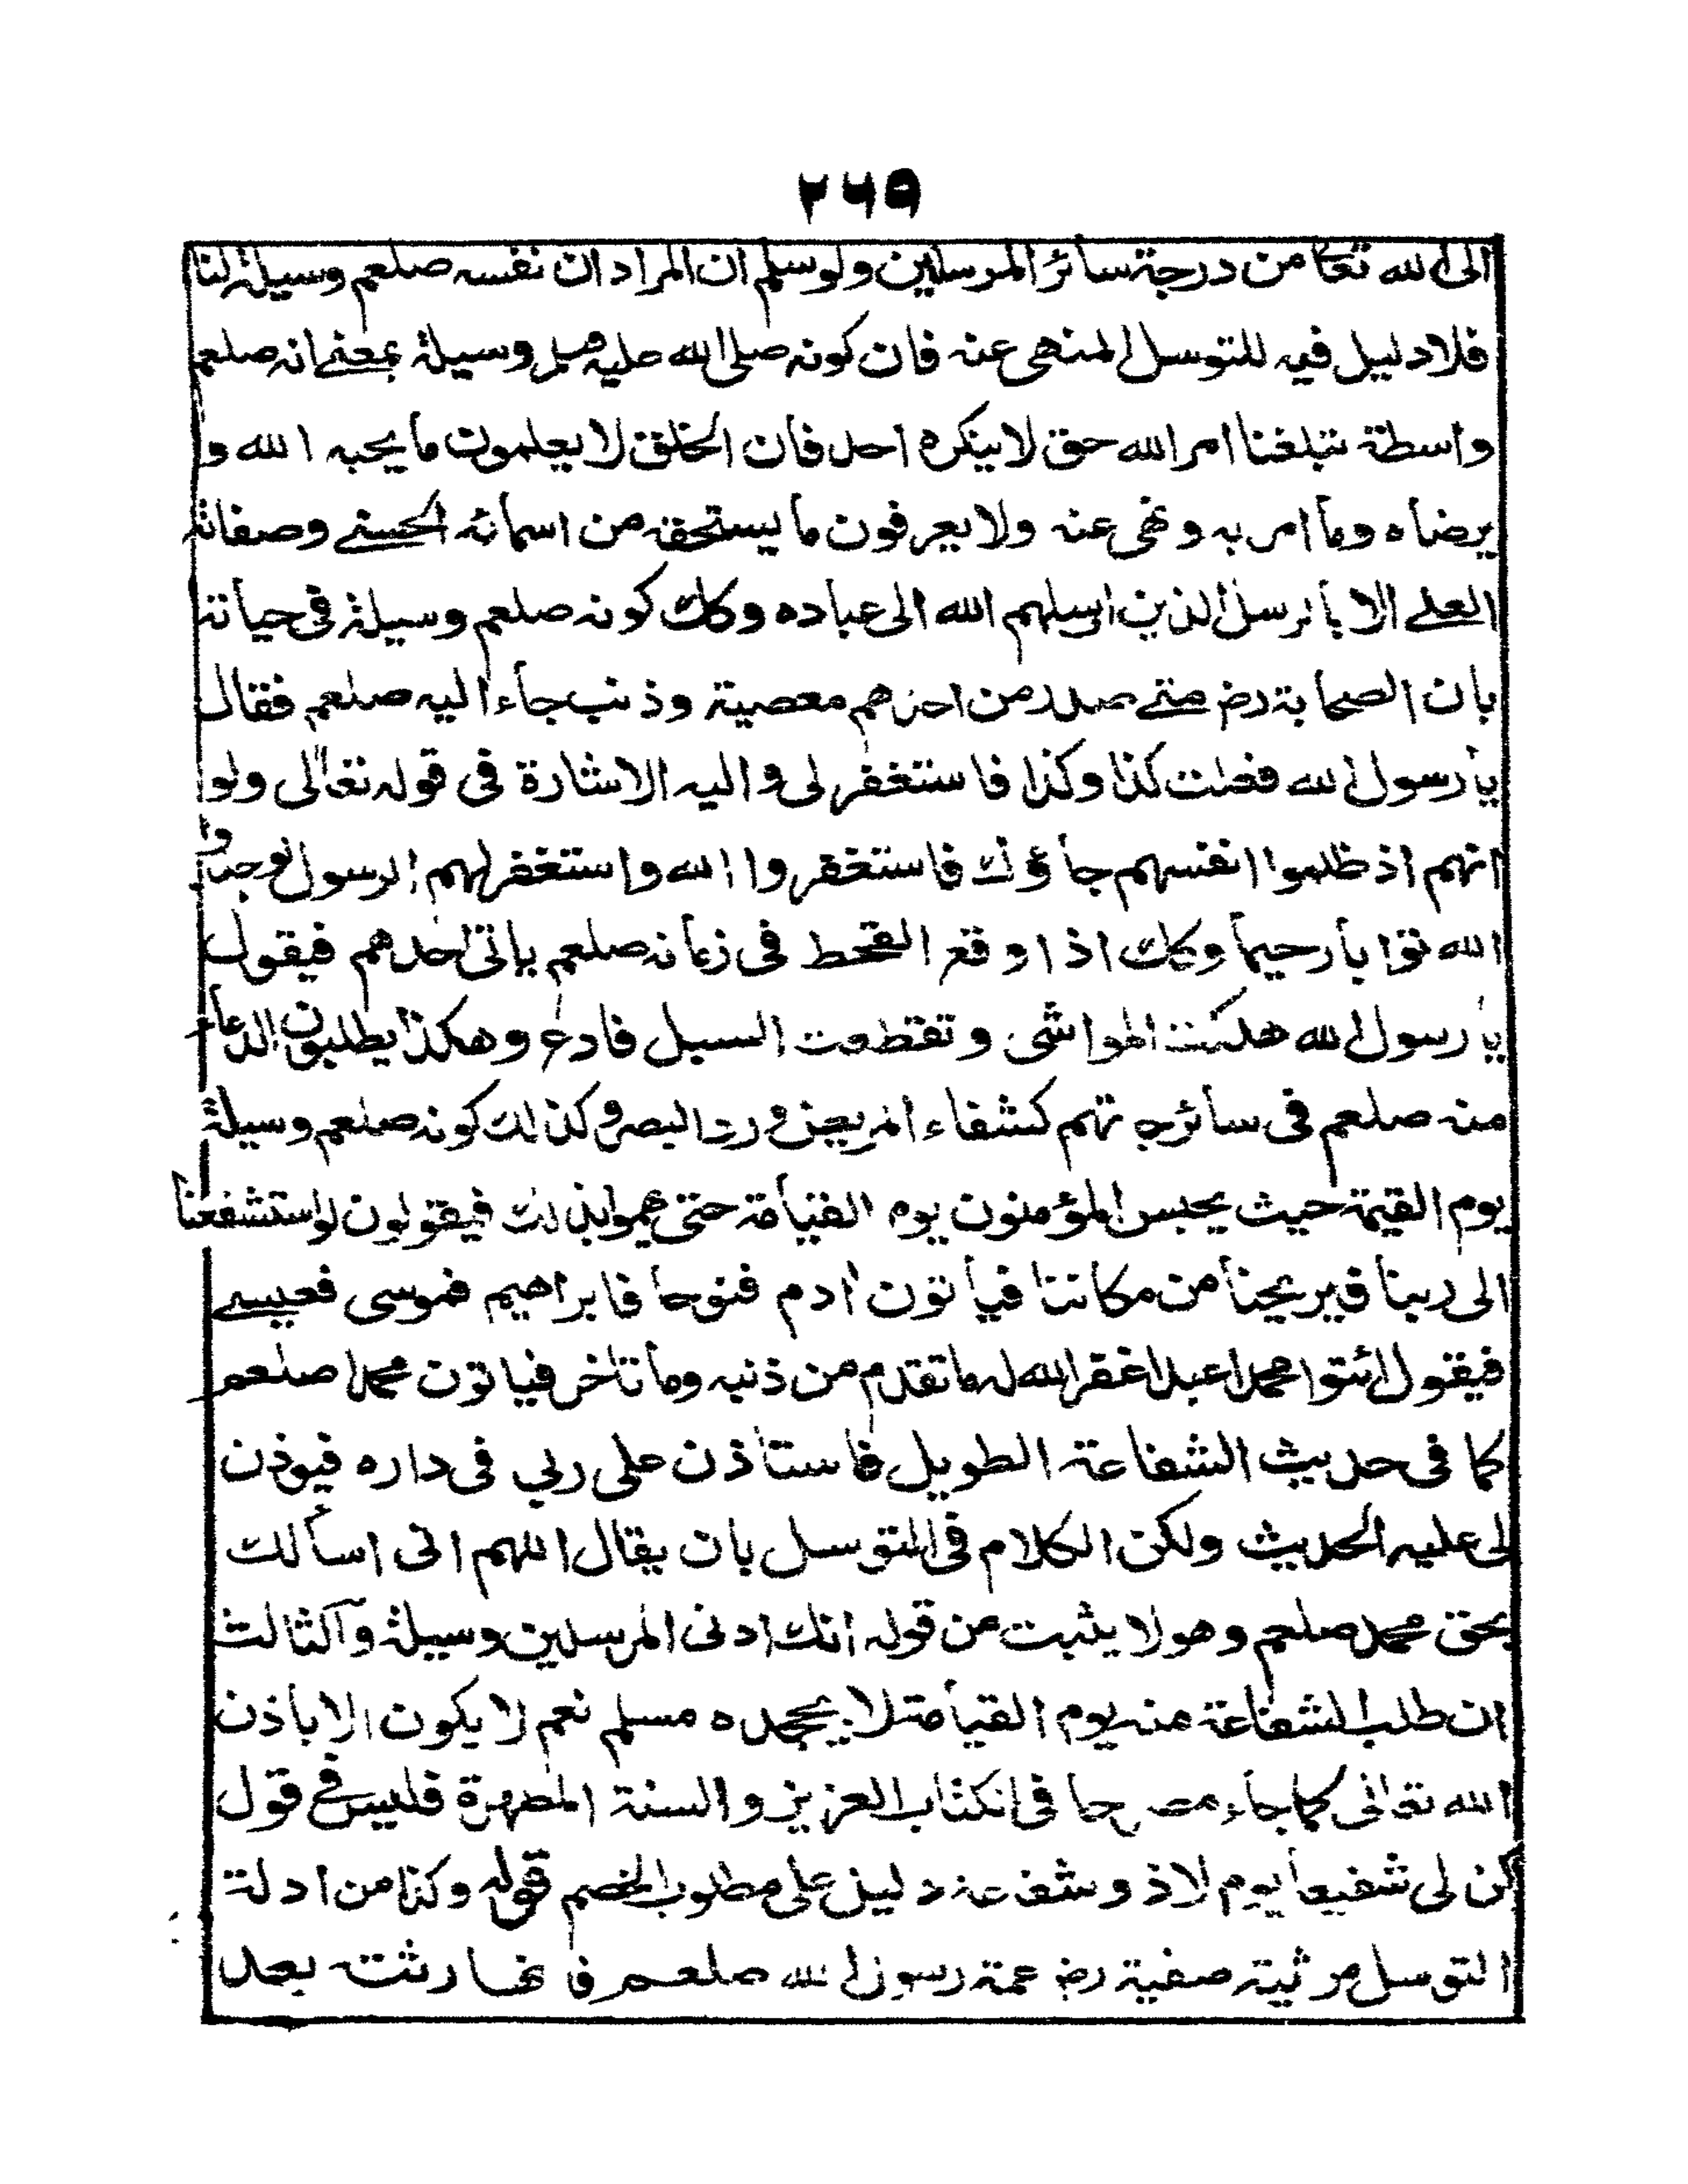 ٢٦٩
الى الله تعا من درجة سائر المرسلين ولو سلم ان المراد ان نفسه صلعم وسيلة لنا
فلا دليل فيه للتوسل المنهى عنه فان كونه صلى الله عليه وسلم وسيلة بمعنے انه صلعم
واسطة تبلغنا امر الله حق لا ينكره احد فان الخلق لا يعلمون ما يحبه الله و
يرضاه وما امر به ونهى عنه ولا يعرفون ما يستحقه من اسمائه الحسنے وصفاته
العلے الا بالرسل الذين ارسلهم الله الى عباده وكك كونه صلعم وسيلة فى حياته
بان الصحابة رض متے صدر من احدهم معصية وذنب جاء اليه صلعم فقال
يا رسول الله فعلت كذا وكذا فاستغفر لى واليه الاشارة فى قوله تعالى ولو
انهم اذ ظلموا انفسهم جاؤك فاستغفروا الله واستغفر لهم الرسول لوجدوا
الله توابا رحيما وكك اذا وقع القحط فى زمانه صلعم ياتى احدهم فيقول
يا رسول الله هلكت المواشى وتقطعت السبل فادع وهكذا يطلبون الدعاء
منه صلعم فى سائر تهم كشفاء المريض ورد البصر وكذلك كونه صلعم وسيلة
يوم القيمة حيث يحبس المؤمنون يوم القيامة حتى يهموا بذلك فيقولون لو استشفعنا
الى ربنا فيريحنا من مكاننا فيأتون ادم فنوحا فابراهيم فموسى فعيسے
فيقول ائتوا محمدا عبدا غفر الله له ما تقدم من ذنبه وما تاخر فياتون محمدا صلعم
كما فى حديث الشفاعة الطويل فاستاذن على ربي فى داره فيوذن
لى عليه الحديث ولكن الكلام فى التوسل بان يقال اللهم انى اسألك
بحق محمد صلعم وهو لا يثبت من قوله انك ادنى المرسلين وسيلة والثالث
ان طلب الشفاعة منه يوم القيامة لا يجحده مسلم نعم لا يكون الا باذن
الله تعالى كما جاء مصرحا فى الكتاب العزيز والسنة المطهرة فليس فے قول
كن لى شفيعا يوم لاذ وشفاعة دليل على مطلوب الخصم قوله وكذا من ادلة
التوسل مرثية صفية رض عمة رسول الله صلعم فانها رثته بعد